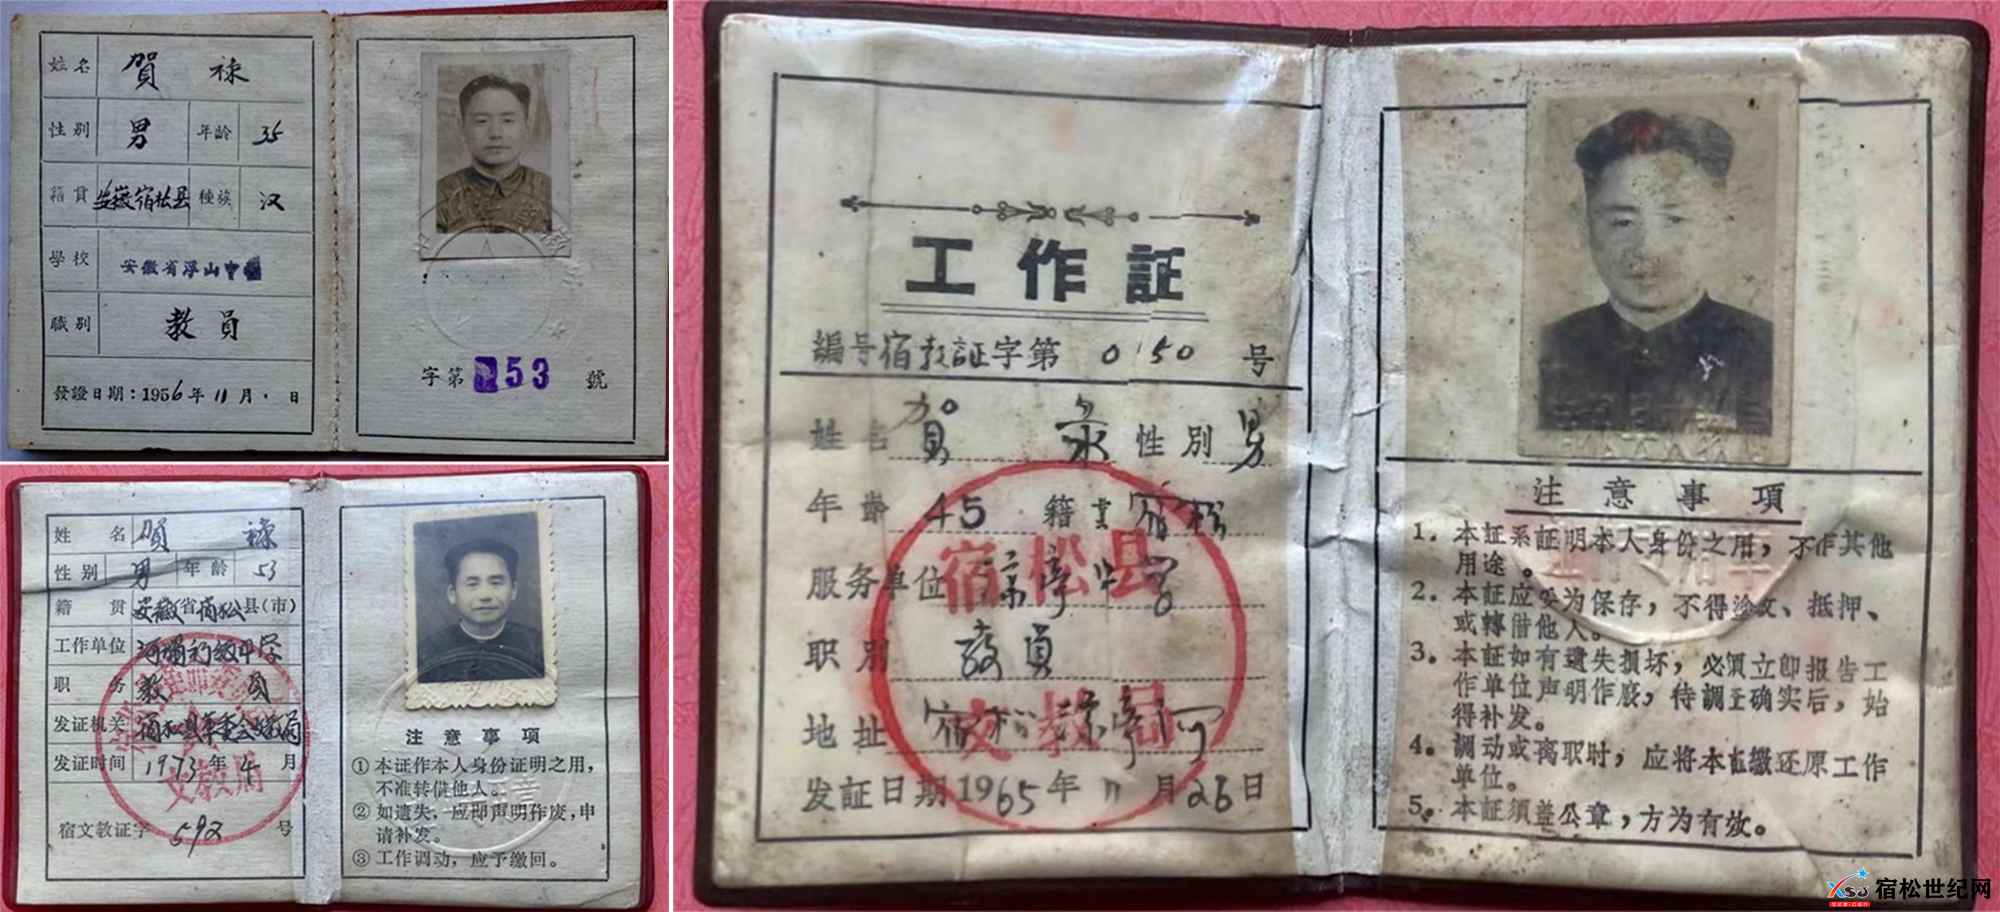 姓名 賀 祿
性别 男 年龄 35
籍貫 安徽宿松县 種族 汉
學校 安徽省浮山中
職别 教員
發證日期：1956年11月 日
字第 53 號
姓名 贺 禄
性别 男 年龄 53
籍贯 安徽省宿松县(市)
工作单位 河塌初级中学
职务 教员
发证机关 宿松县革委会文教局
发证时间 1973年4月
宿文教证字 592 号
文教局
注意事项
①本证作本人身份证明之用，
不准转借他人。
②如遗失，应即声明作废，申
请补发。
③工作调动，应予缴回。
工作証
编号宿教証字第 0150 号
姓名 贺 录 性別 男
年龄 45 籍贯 宿松
服务单位
职别 教員
地址 宿松
发証日期 1965年11月26日
宿松县
文教局
注意事項
1。本証系証明本人身份之用，不作其他
用途。
2。本証应妥为保存，不得塗改、抵押、
或轉借他人。
3。本証如有遺失損坏，必須立即报告工
作单位声明作废，待調查确实后，始
得补发。
4。調动或离职时，应将本証缴还原工作
单位。
5。本証須盖公章，方为有效。
宿松世纪网